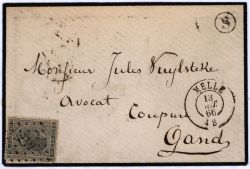 Monsieur Jules Vuylsteke
Avocat Coupure
Gand
MELLE
13
66